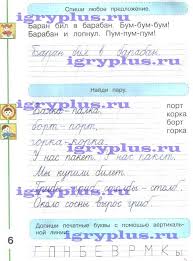 igryplus.ru
Спиши любое предложение.
Баран бил в барабан. Бум-бум-бум!
Барабан и лопнул. Пум-пум-пум!
igryplus.ru
Баран бил в барабан.
igryplus.ru
Найди пару.
Балка - палка.
борт
горка
борт - порт,
порт
корка
горка - корка.
У нас пакет. У нас пакет.
igryplus.ru
Мы купили билет.
igryplus.ru
Около сосны вырос гриб.
igryplus.ru
Допиши печатные буквы с помощью вертикальной линии.
6
igryplus.ru